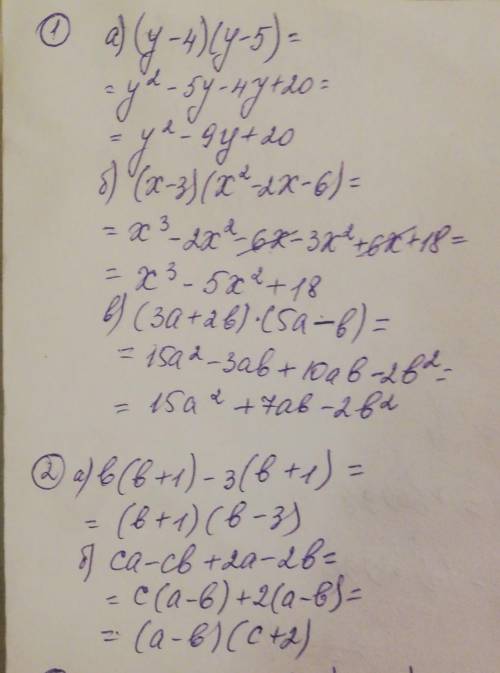 ① а) (y-4)(y-5)=
= y² - 5y - 4y + 20 =
= y² - 9y + 20
б) (x-3)(x²-2x-6)=
= x³ - 2x² - 6x - 3x² + 6x + 18 =
= x³ - 5x² + 18
в) (3a+2b)·(5a-b)=
= 15a² - 3ab + 10ab - 2b² =
= 15a² + 7ab - 2b²
② а) b(b+1) - 3(b+1) =
= (b+1)(b-3)
б) ca-cb+2a-2b=
= c(a-b)+2(a-b)=
= (a-b)(c+2)